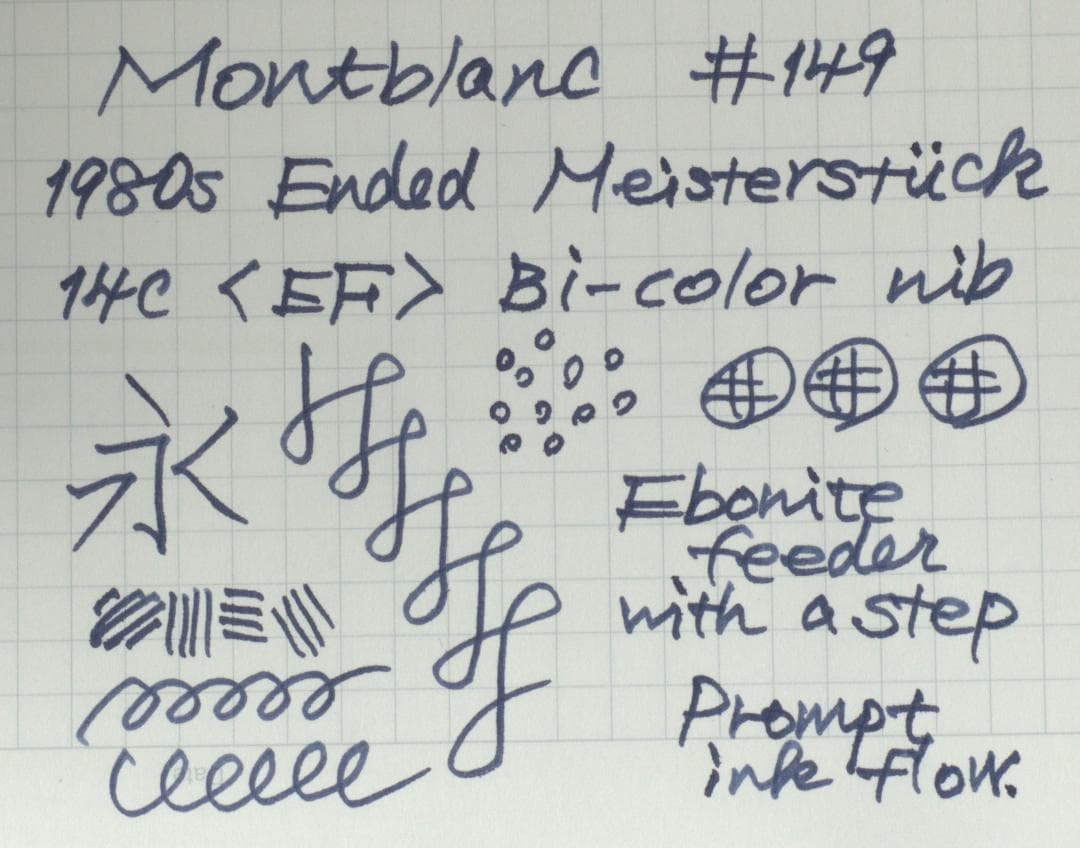 Montblanc #149
1980s Ended Meisterstück
14C <EF> Bi-color nib
永
Ebonite
feeder
with a step
Prompt
ink flow.